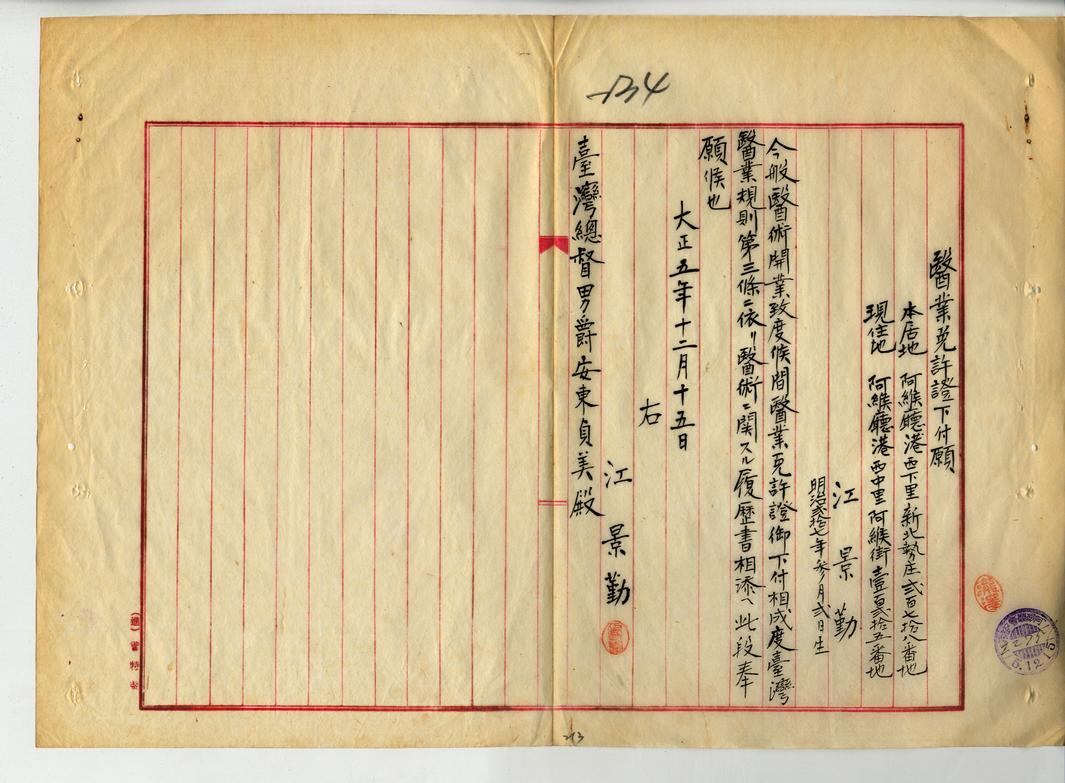 134
醫業免許證下付願
本居地 阿緱廳港西下里新北勢庄弍百七拾八番地
現住地 阿緱廳港西中里阿緱街壹百弍拾五番地
江景勤
明治弍拾七年參月弍日生
今般醫術開業致度候間醫業免許證御下付相成度臺灣
醫業規則第三條ニ依リ醫術ニ関スル履歴書相添ヘ此段奉
願候也
大正五年十二月十五日
右
江景勤
臺灣總督男爵安東貞美殿
5.12.15
213